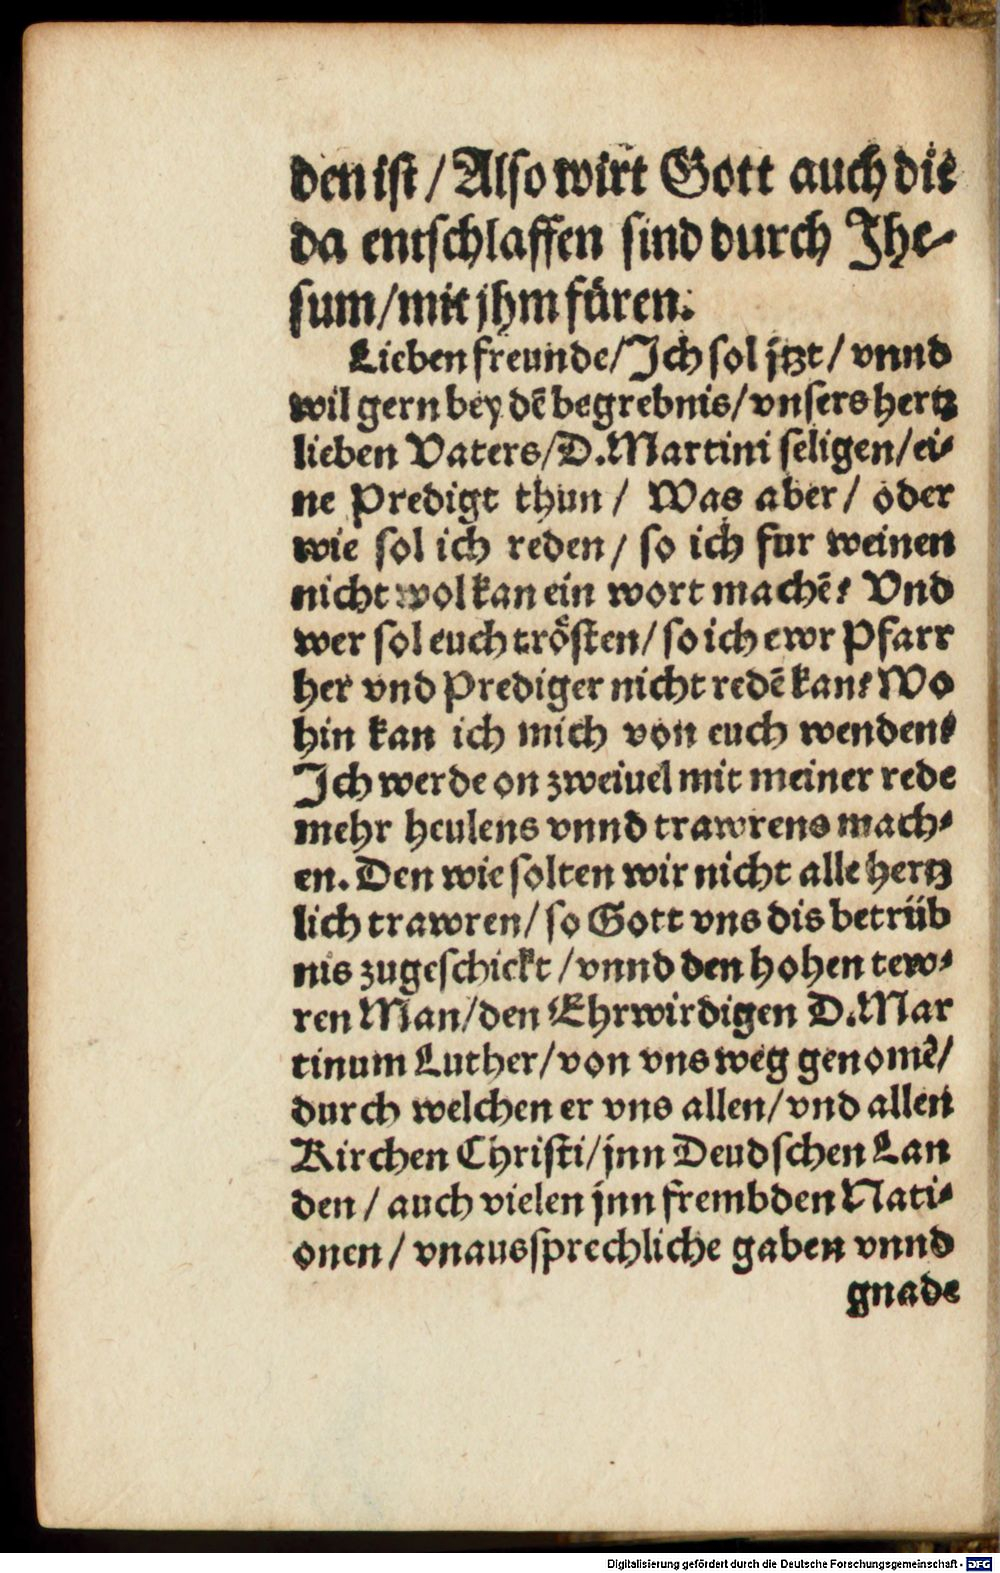 den ist / Also wirt Gott auch die
da entschlaffen sind durch Jhe-
sum / mit jhm füren.
Lieben freunde / Ich sol jtzt / vnnd
wil gern bey dē begrebnis / vnsers hertz
lieben Vaters / D. Martini seligen / ei-
ne Predigt thun / Was aber / oder
wie sol ich reden / so ich fur weinen
nicht wol kan ein wort machē? Vnd
wer sol euch trösten / so ich ewr Pfarr
her vnd Prediger nicht redē kan? Wo
hin kan ich mich von euch wenden?
Ich werde on zweiuel mit meiner rede
mehr heulens vnnd trawrens mach-
en. Den wie solten wir nicht alle hertz
lich trawren / so Gott vns dis betrüb
nis zugeschickt / vnnd den hohen tew-
ren Man / den Ehrwirdigen D. Mar
tinum Luther / von vns weg genomē /
durch welchen er vns allen / vnd allen
Kirchen Christi / jnn Deudschen Lan
den / auch vielen jnn frembden Nati-
onen / vnaussprechliche gaben vnnd
gnade
Digitalisierung gefördert durch die Deutsche Forschungsgemeinschaft - DFG